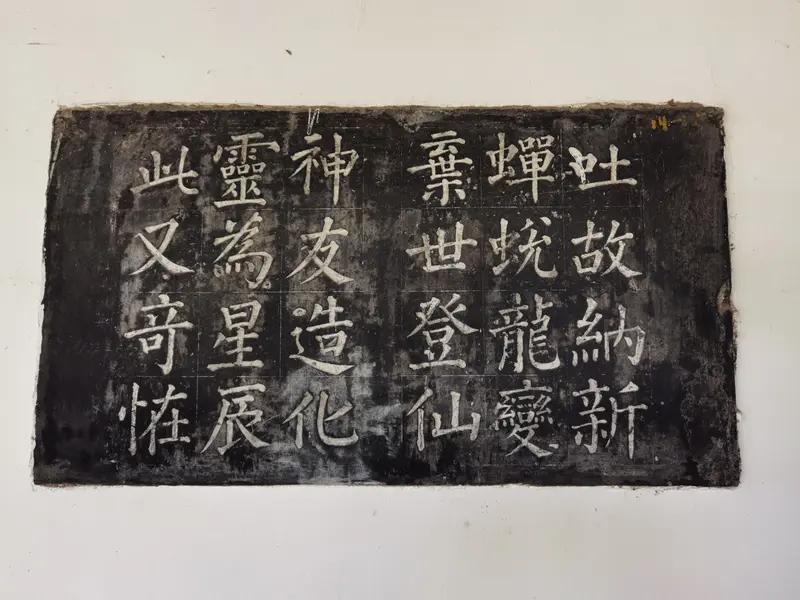 吐故納新
蟬蛻龍變
棄世登仙
神友造化
靈為星辰
此又奇恠
14